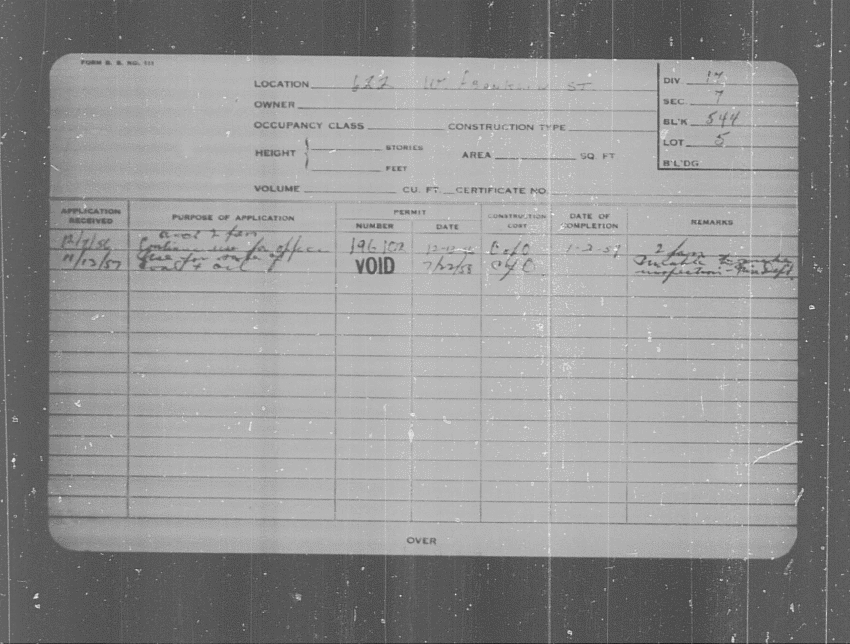 FORM B. B. NO. 111
LOCATION 622 W. Franklin ST.
DIV. 17
OWNER
SEC. 7
OCCUPANCY CLASS CONSTRUCTION TYPE
BL'K 544
LOT 5
HEIGHT STORIES AREA SQ. FT.
FEET
B'L'DG
VOLUME CU. FT. CERTIFICATE NO.
APPLICATION RECEIVED PURPOSE OF APPLICATION PERMIT NUMBER DATE CONSTRUCTION COST DATE OF COMPLETION REMARKS
and 2 fam
12/7/56 Continue use for office 196102 C of O 1-2-57 2 fam
11/13/57 Use for of coal & oil VOID 7/22/58 C of O Unable to make inspection - Fire Dept.
OVER